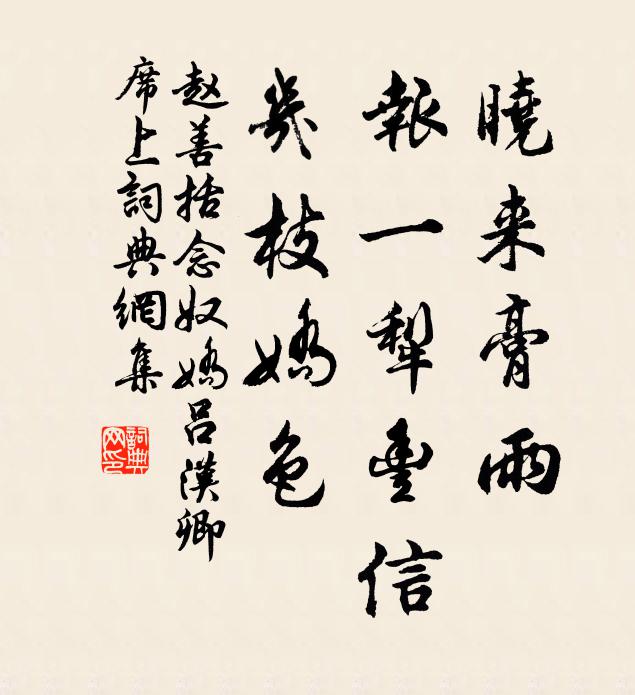 曉来膏雨
報一犁豐信
幾枝嬌色
赵善括念奴嬌吕漢卿
席上詞典網集
詞典网印